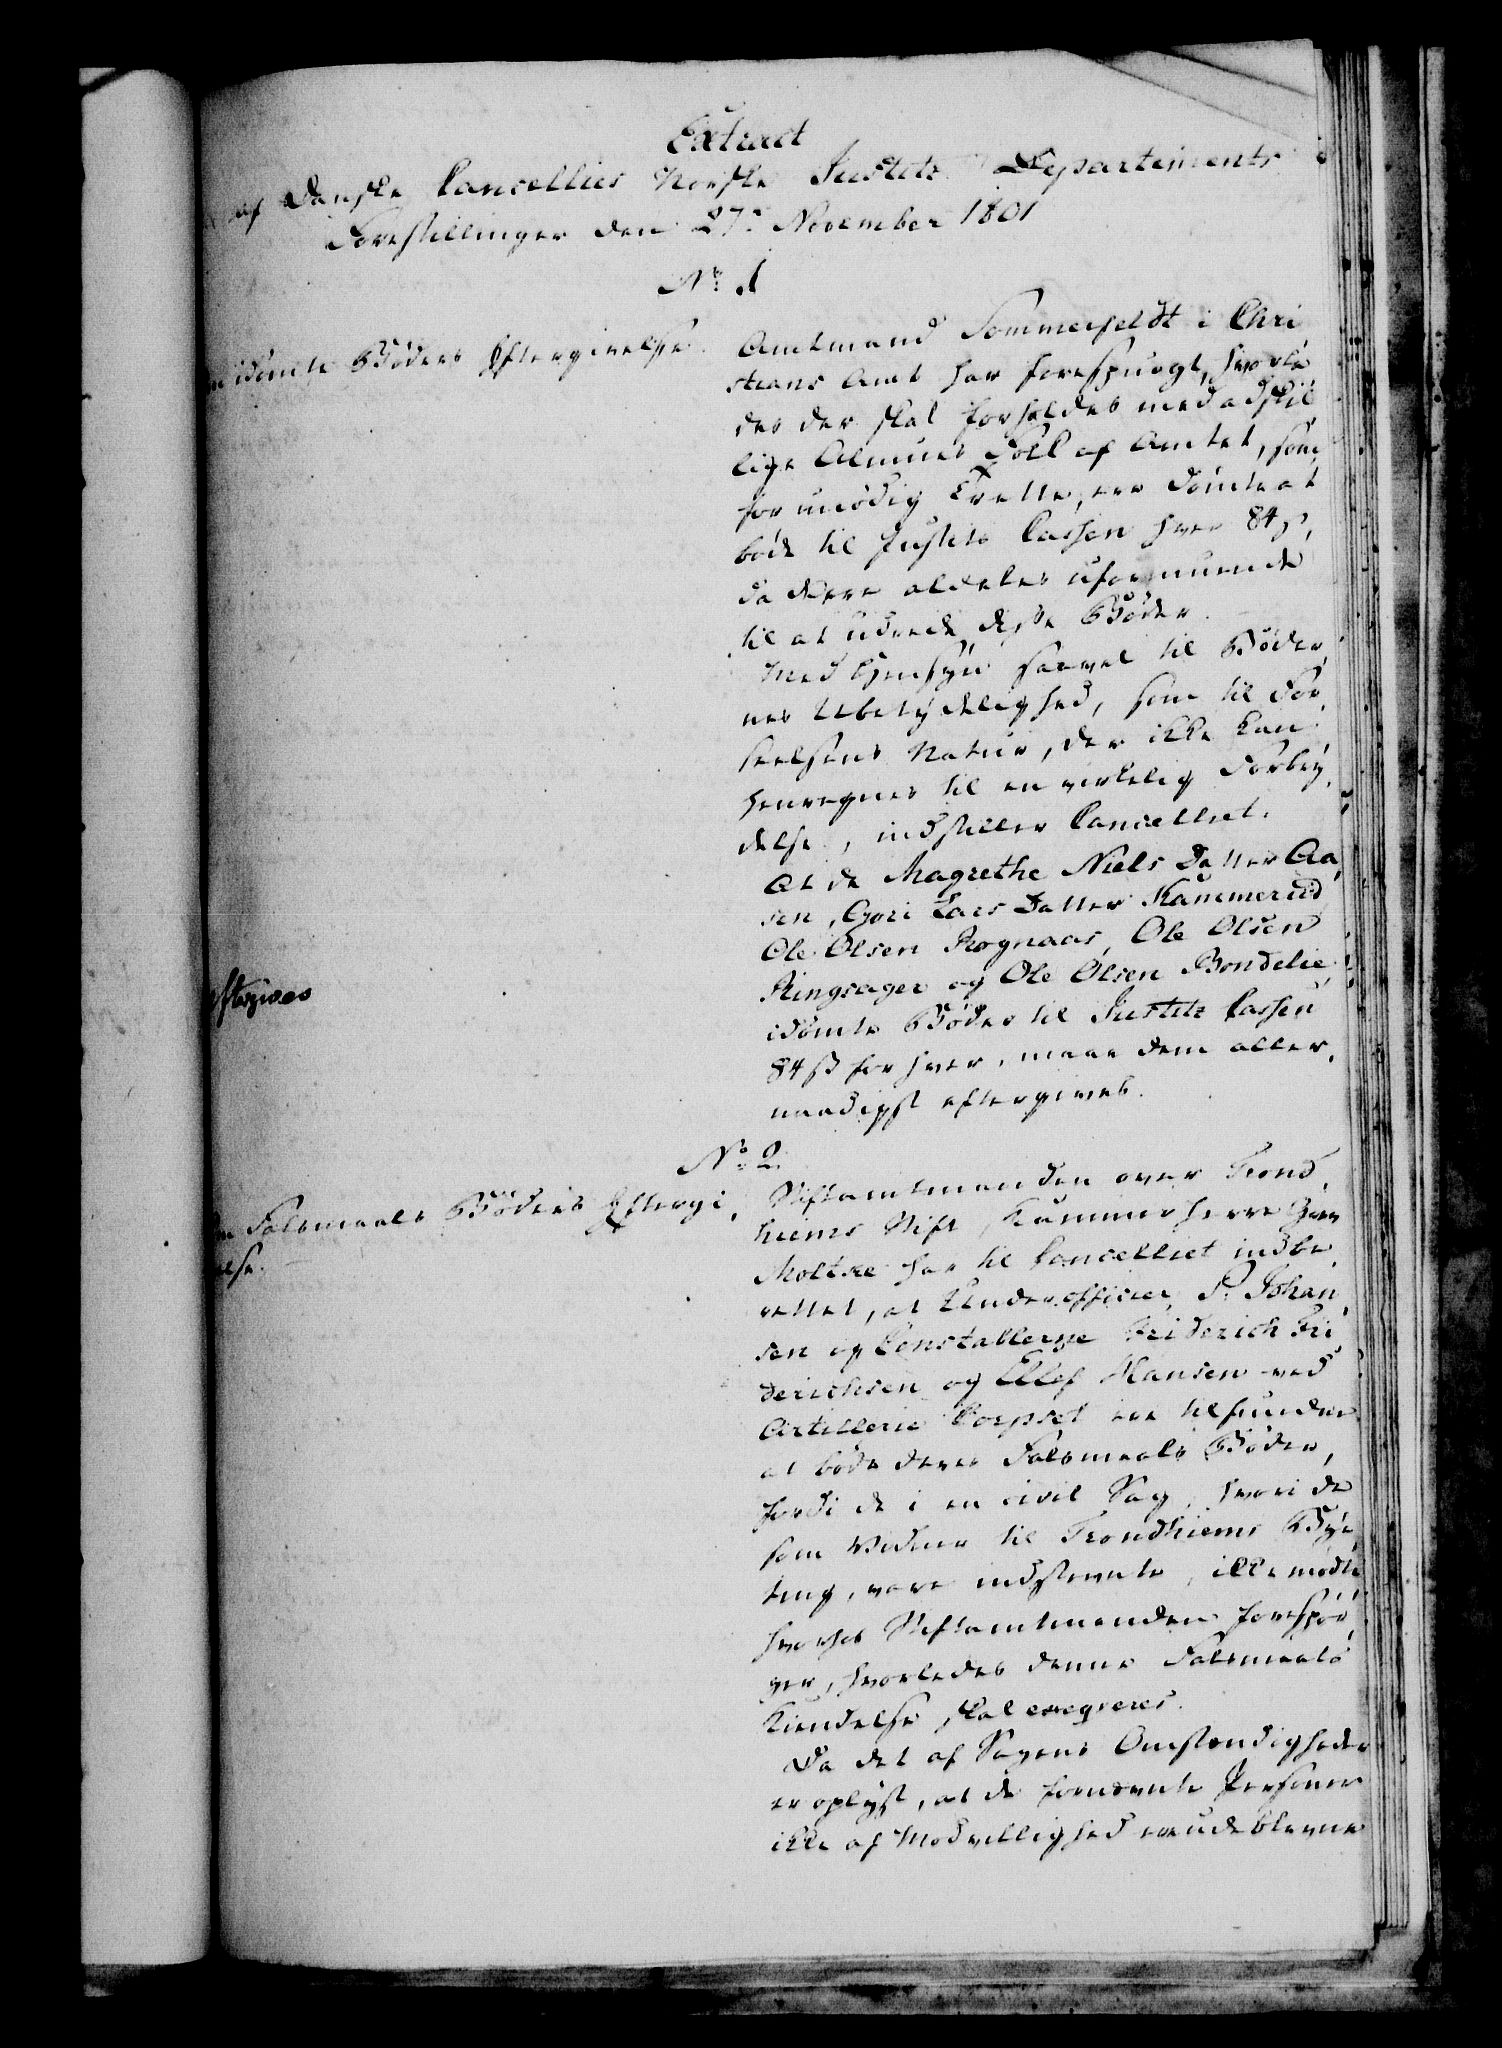 Extract
af Danske Cancellies Norske Justitz Departements
Forestillinger den 27de November 1801
No 1
idømte Bøders Eftergivelse.
Amtmand Sommerfeldt i Chri
stians Amt har forespurgt, hvorle
des der skal forholdes med adskil
lige Almues Folk af Amtet, som
for unødig Trette, ere dømte at
bøde til Justits Cassen hver 84 s,
da de ere aldeles uformuende
til at udrede disse Bøder.
Med Hensyn saavel til Bøder
nes Ubetydelighed, som til For
seelsens Natur, der ikke kan
henregnes til en virkelig Forbry
delse, indstiller Cancelliet.
At de Magrethe Niels Datter Aa
sen, Gori Lars Datter Kammerud
Ole Olsen Rognaas, Ole Olsen
Ringsager og Ole Olsen Bondelie
idømte Bøder til Justitz Cassen
84 s for hver, maae dem aller
naadigst eftergives.
eftergives
No 2.
Falsmaals Bøders Eftergi
velse.
Stiftamtmanden over Trond
hiems Stift, Kammerherre Grev
Moltke har til Cancelliet indbe
rettet, at Underofficer P. Johan
sen og Constablerne Friderich Fri
derichsen og Ellef Hansen ved
Artillerie Corpset ere tilfunden
at bøde deres Falsmaals Bøder,
fordi de i en civil Sag, hvori de
som Vidner til Trondhiems Bye
ting, vare indstevnte, ikke mødte
hvorfor Stiftamtmanden forespør
ger, hvorledes denne Falsmaals
Kiendelse skal exeqveres.
Da det af Sagens Omstændigheder
er oplyst, at de fornævnte Personer
ikke af Modvillighed ere udeblevne